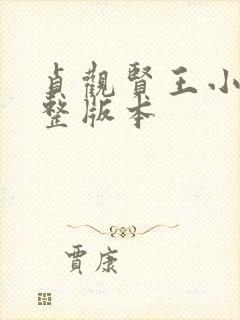 貞觀賢王小
整版本
賈康